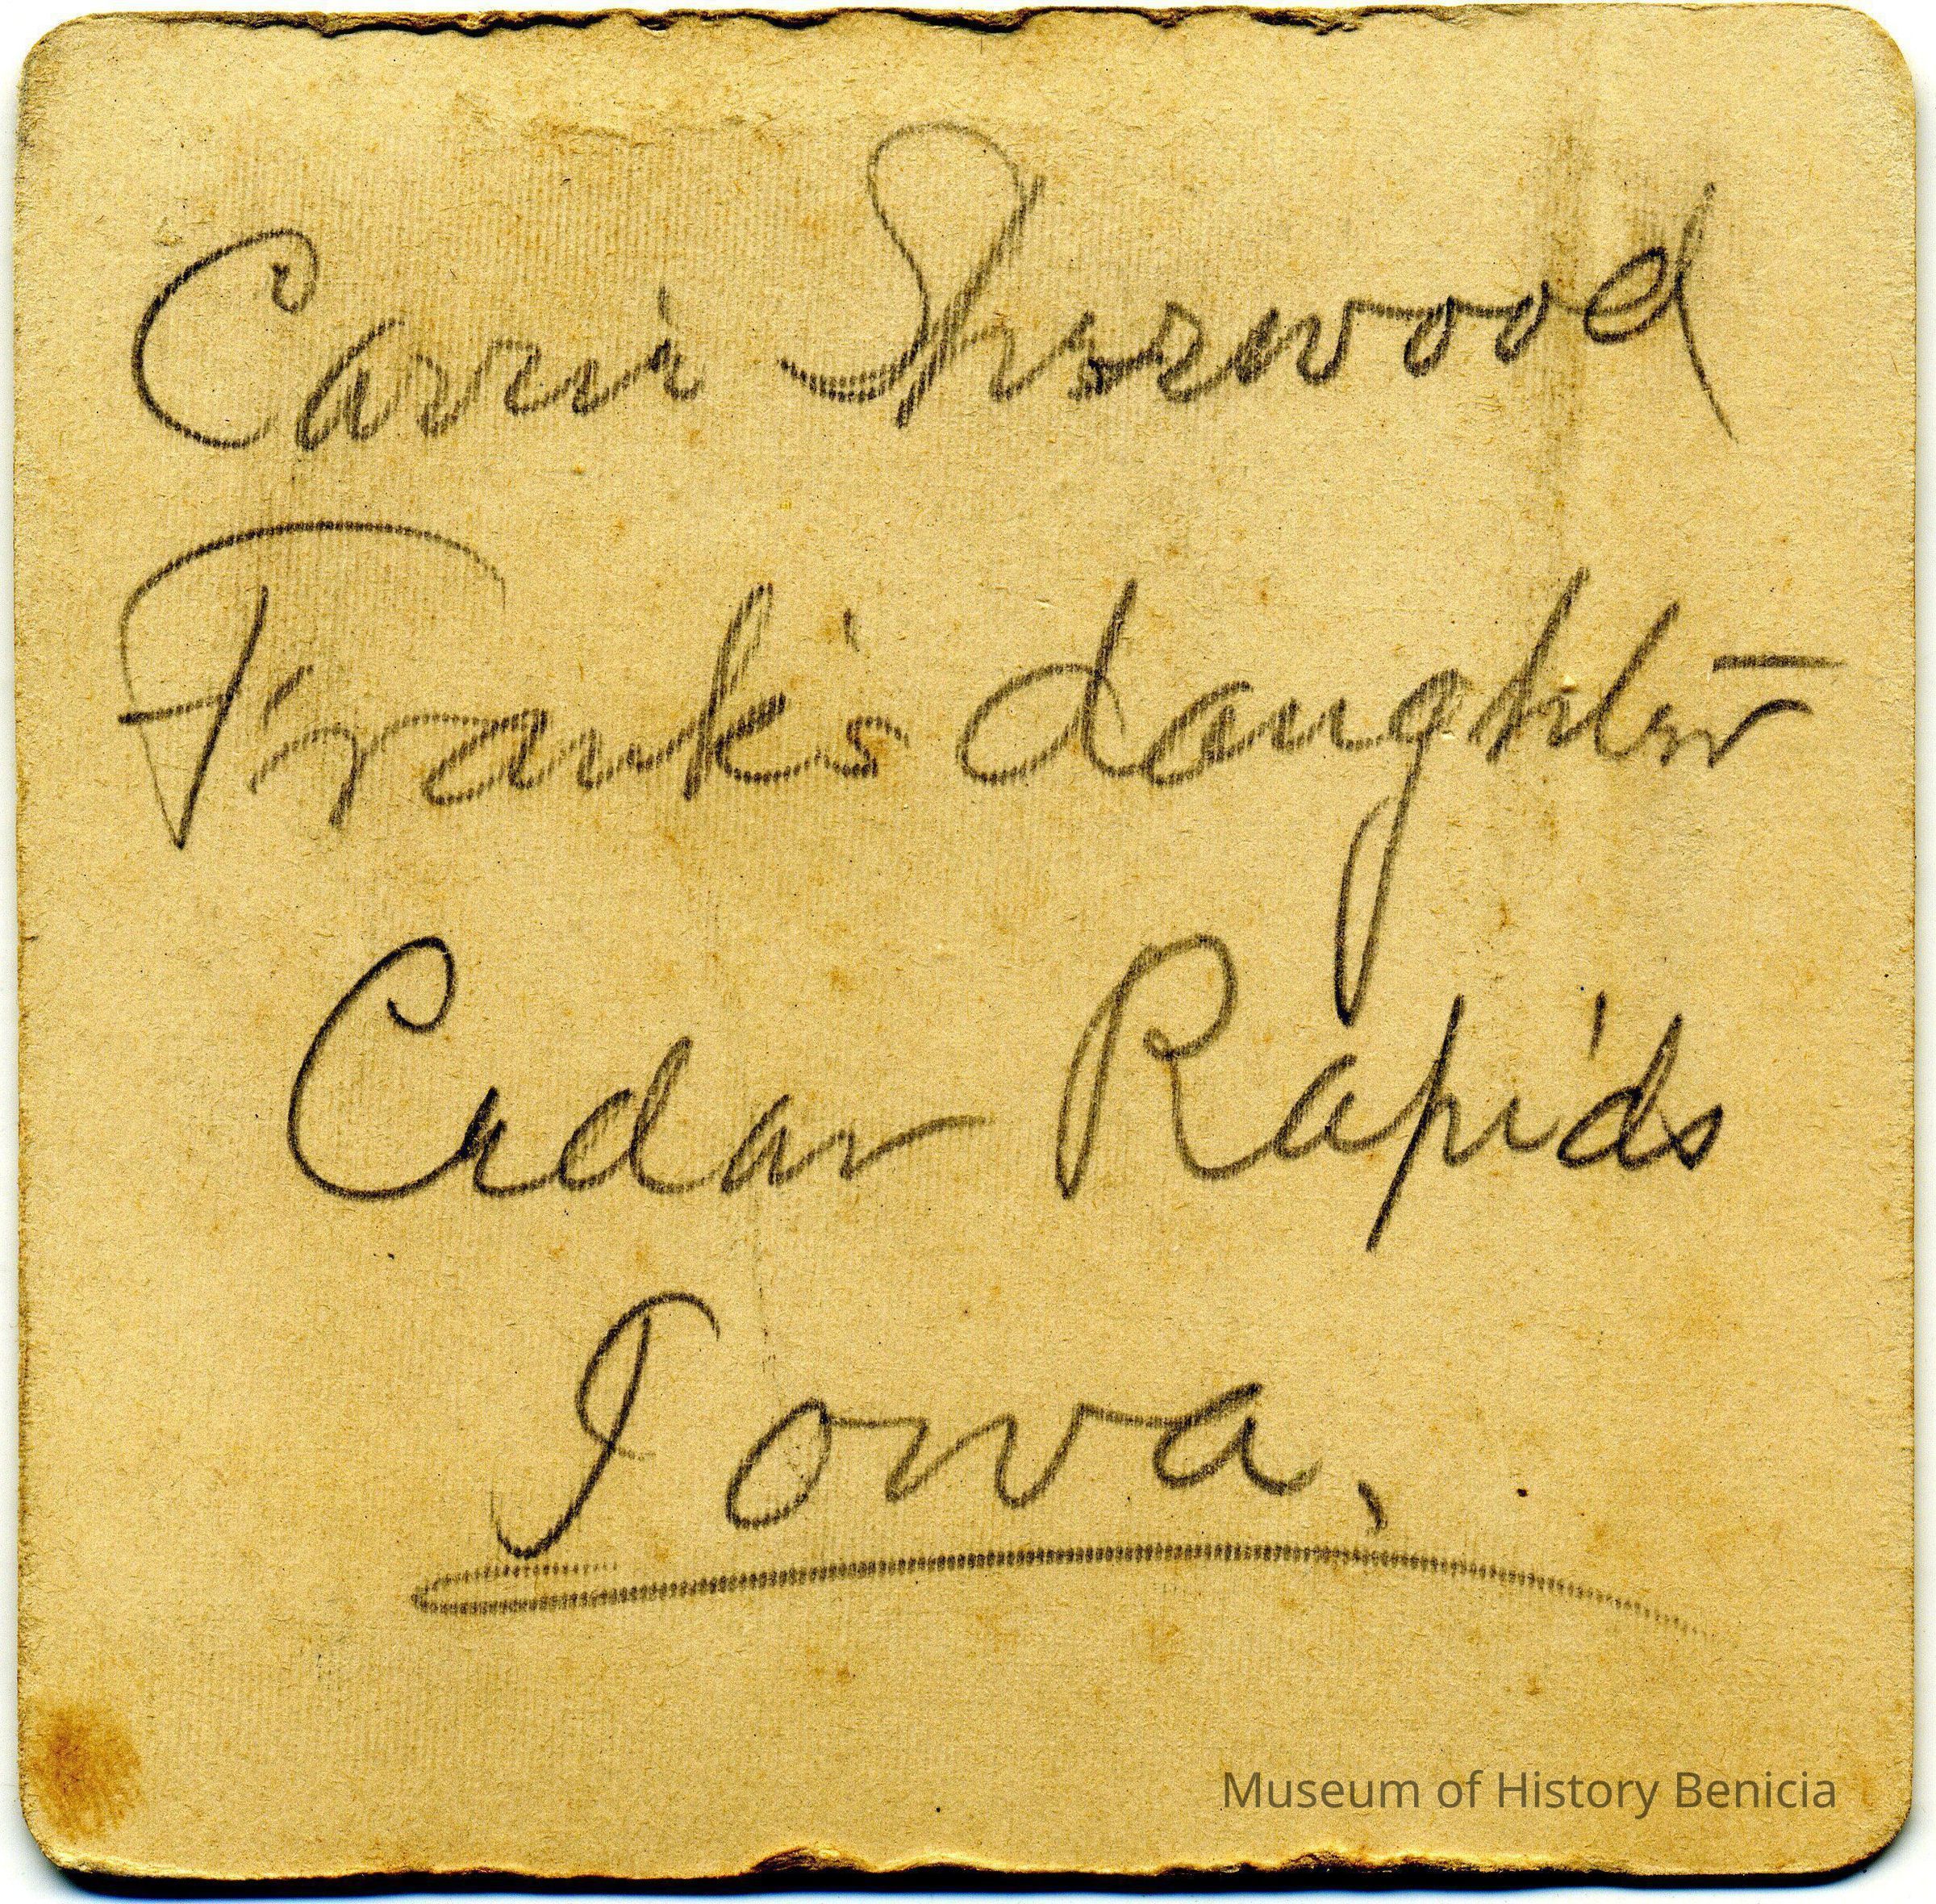 Carrie Sherwood
Frank's daughter
Cedar Rapids
Iowa.
Museum of History Benicia